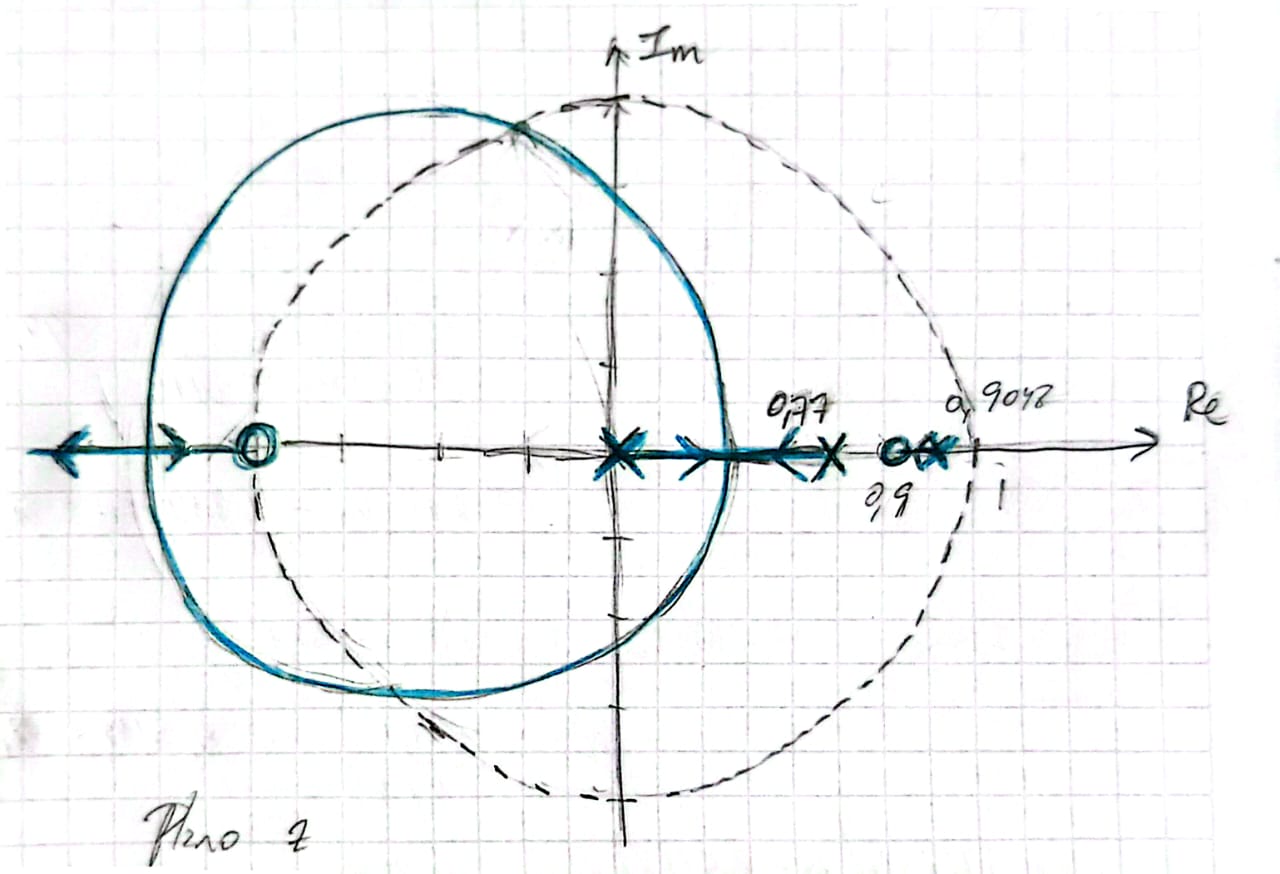 Im
0,77
0,9048
Re
0,9
1
Plano z